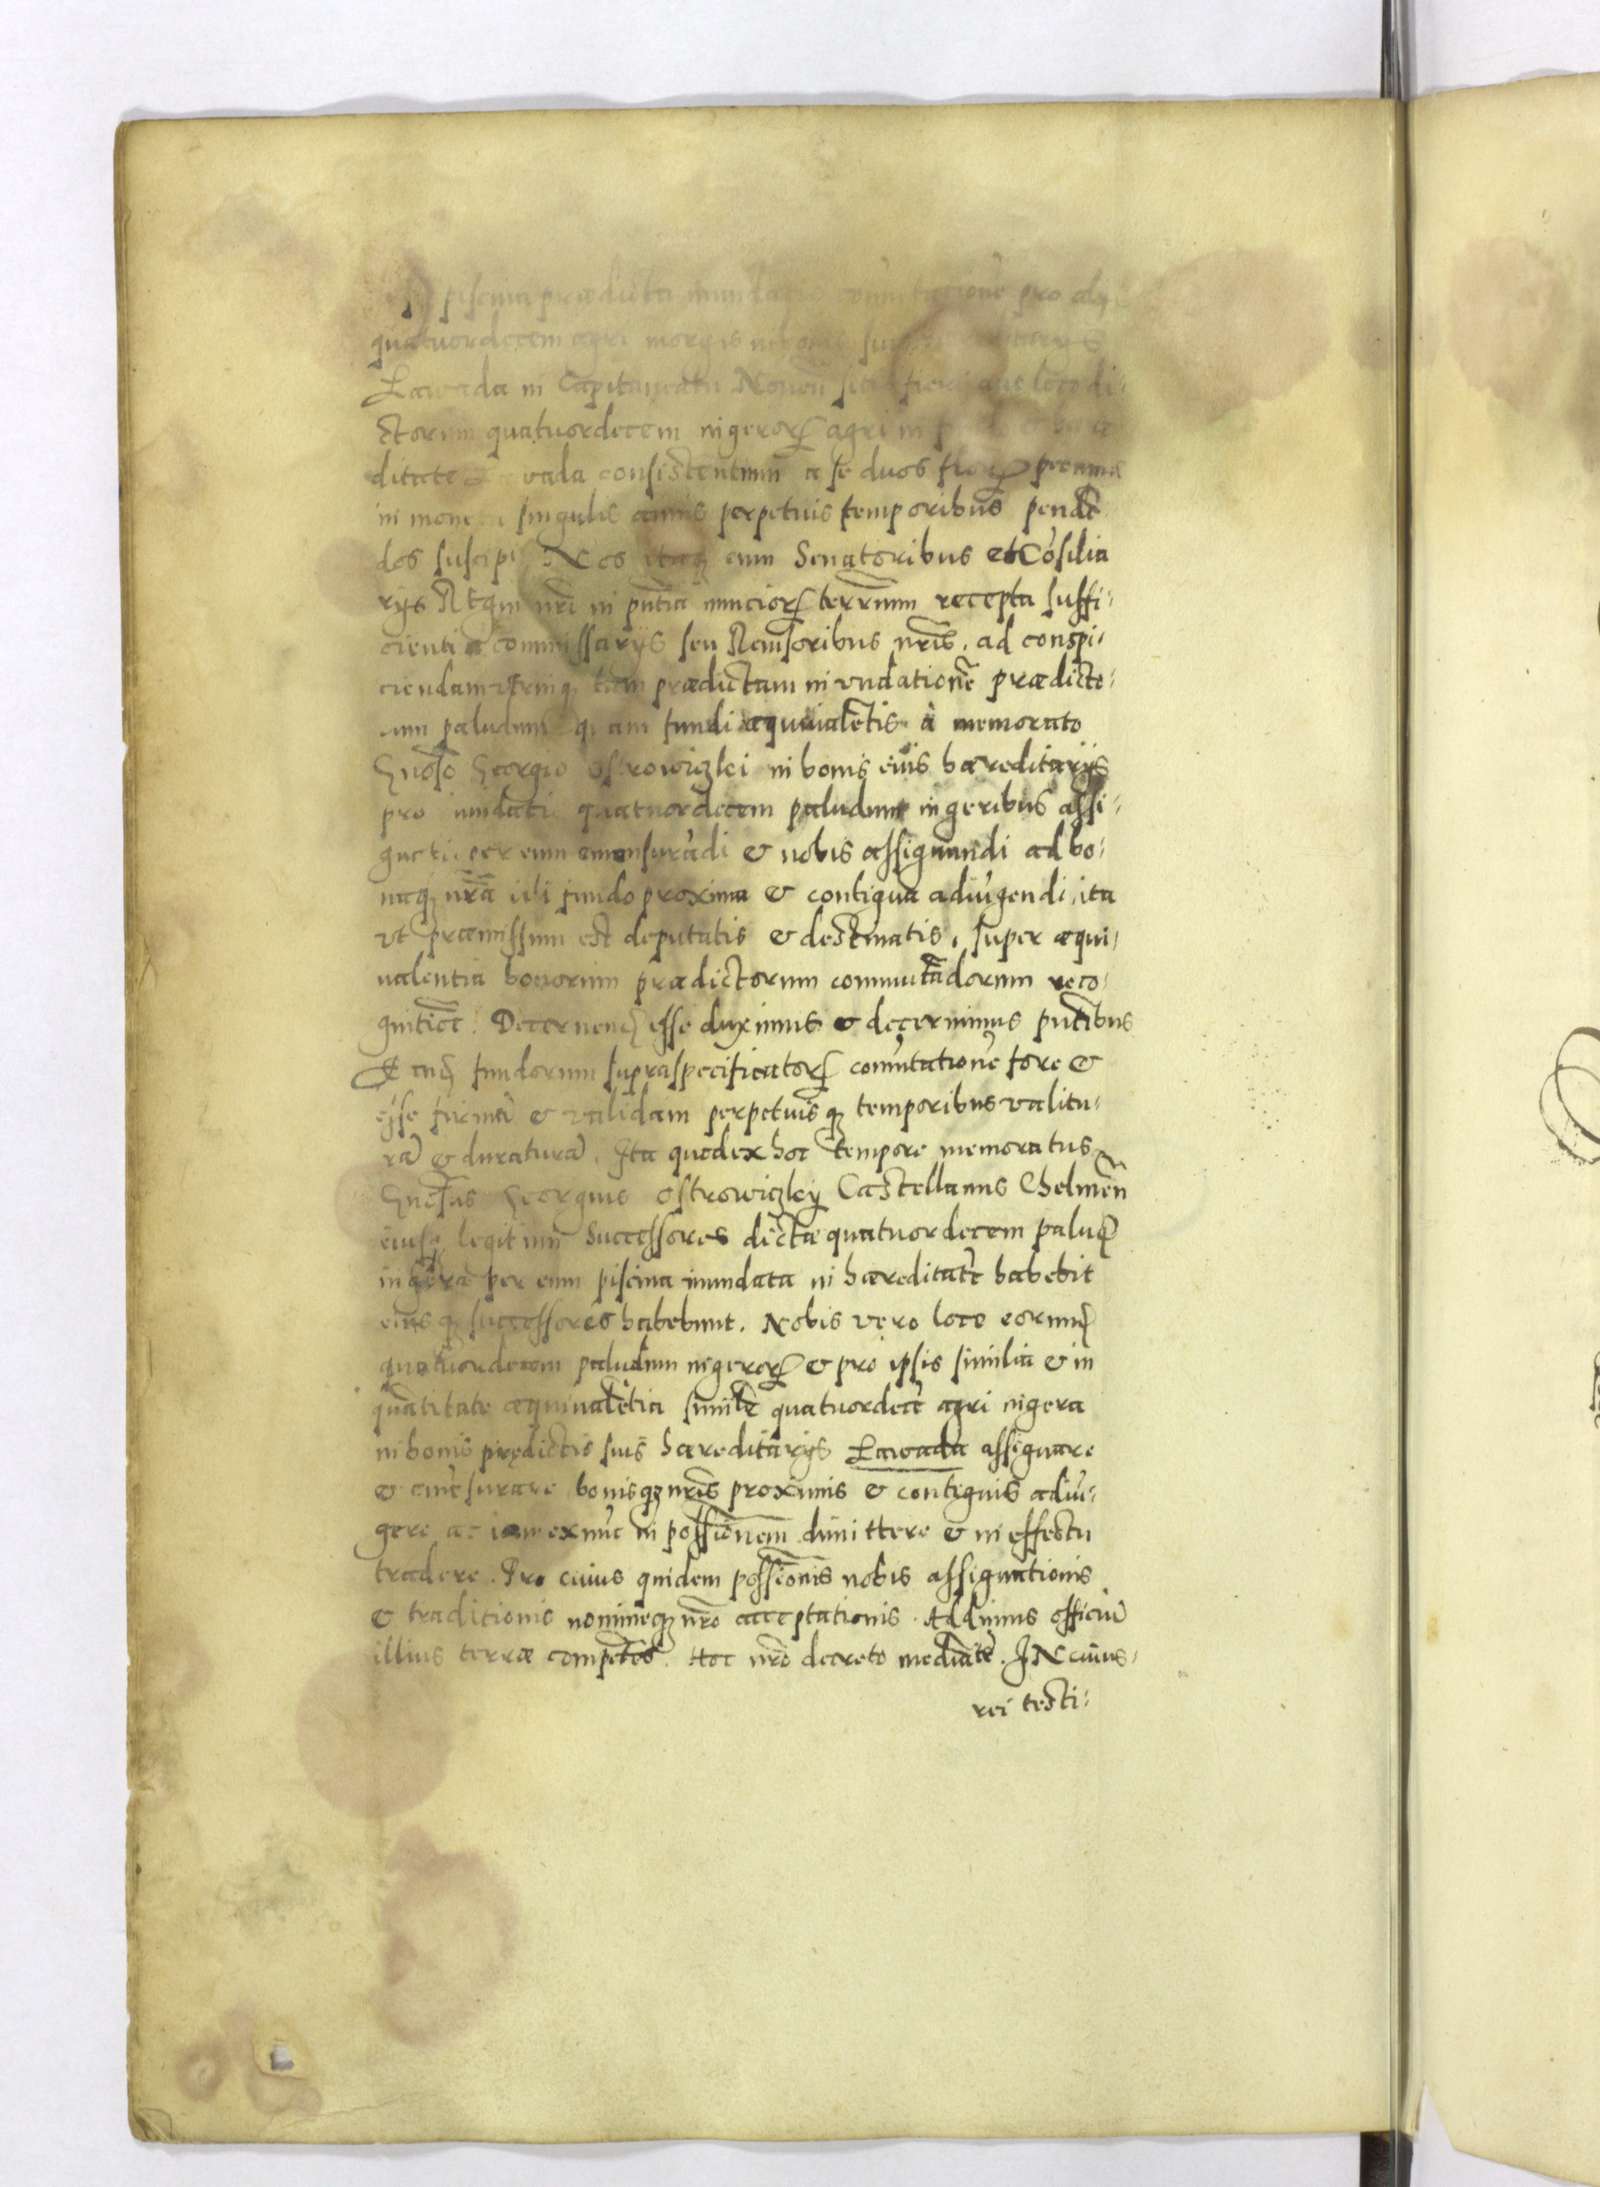 piscina prædicta inundatis comutatione pro aliis
quatuordecem agri morgis
Lawada in Capitaneatu Novem̃ loco di-
ctorum quatuordecem iugeror agri in
ditate vada consistentium a se duos
in mone singulis annis perpetuis temporibus pendē
dos suscipi Nos itaq cum Senatoribus et Cōsilia
rijs Regni nr̄i in pn̄tia nuncior terrarum recepta suffi-
cienti a commissarijs seu Revisoribus nr̄is, ad conspi-
ciendam utrinq tam prædictam inundationē prædicto-
rum paludum q am fundi æquivalētis à memorato
Gnoso Georgio Ostrowiczkei in bonis eius hæreditarijs
pro inundatis quatuordecem paludum iugeribus assi-
gnati per eum emensurādi & nobis assignandi ad bo-
naq nr̄a illi fundo proxima & contigua adiūgendi, ita
ut præmissum est deputatis & destinatis, super æqui-
valentia bonorum prædictorum commutādorum reco-
gnitiōē. Decernend esse duximus & decernimus pn̄tibus
Eand fundorum supraspecificator comutationē fore &
esse firmā & validam perpetuisq temporibus valitu-
rā & duraturā. Ita quod ex hoc tempore memoratus
Gnosus Georgius Ostrowiczkij Castellanus Chelmeñ
eiusq legitimi Successores dicta quatuordecem palud
iugera per eum piscina inundata in hæreditatē habebit
eiusq successores habebunt. Nobis vero loco eorund
quatuordecem paludum iugeror & pro ipsis similia & in
quātitate æquivalētia similr̄ quatuordecē agri iugera
in bonis prędictis suis hæreditarijs Lawada assignare
& emēsurare bonisq nr̄is proximis & contiguis adiū-
gere ac iam ex nūc in possionem dimittere & in effectu
tradere. Pro cuius quidem possionis nobis assignationis
& traditionis nomineq nr̄o acceptationis. Addimus officiū
illius terræ competēs. Hoc nr̄o decreto mediāte. IN cuius-
rei testi-